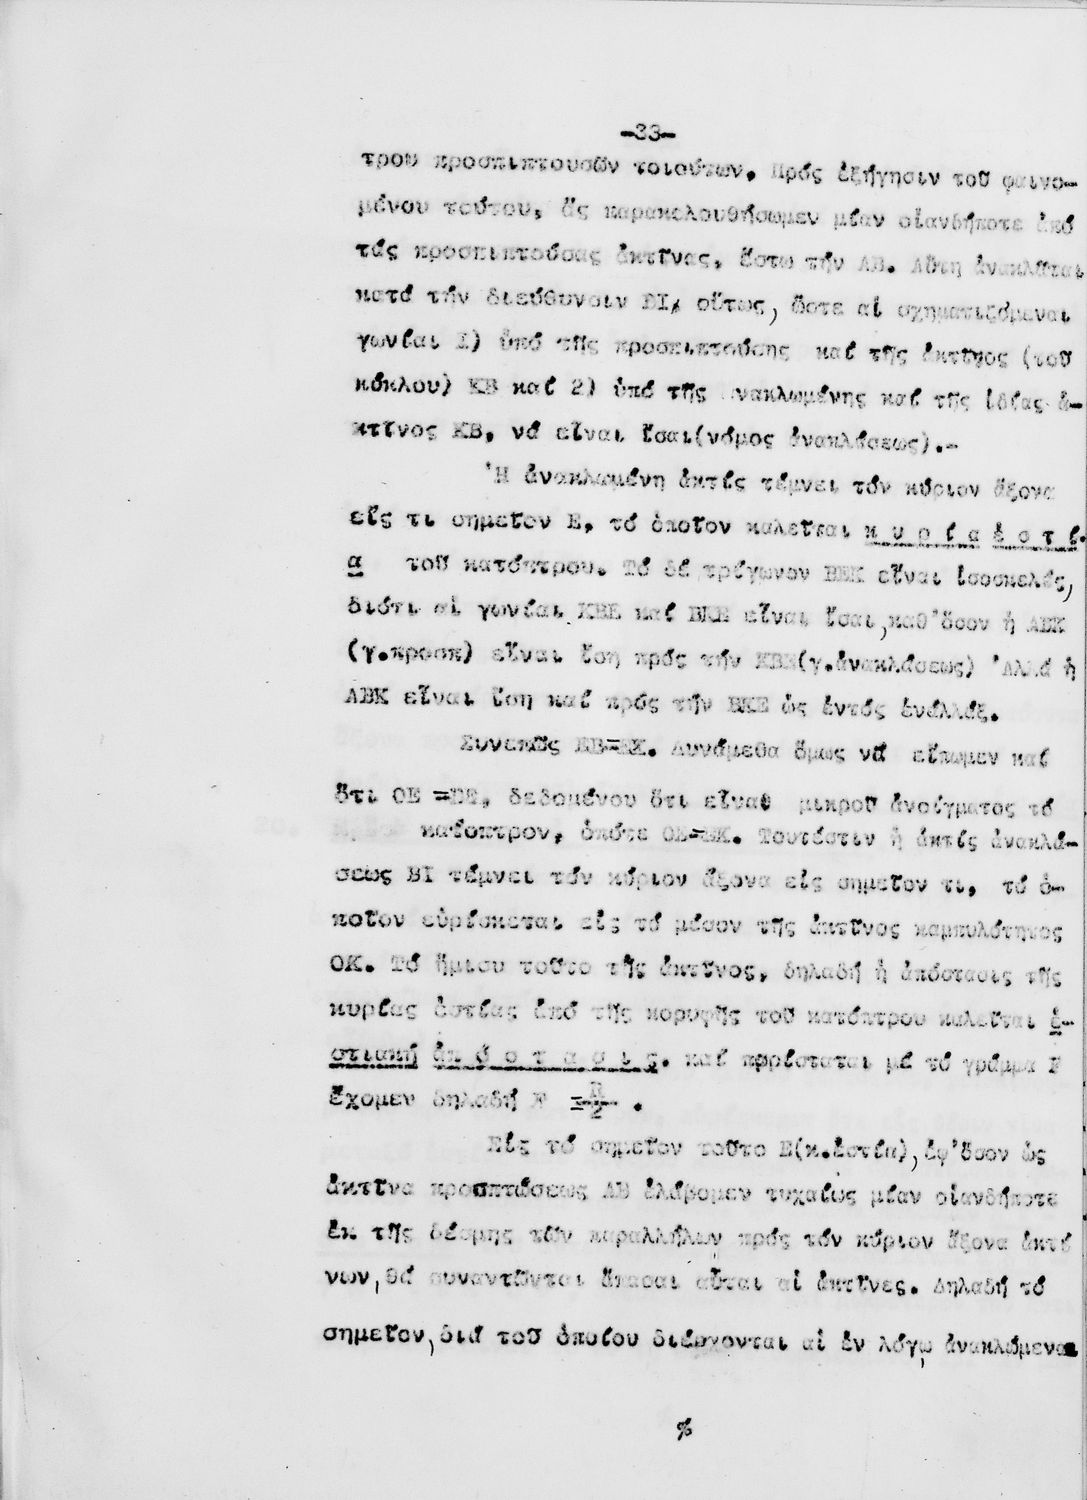 -33-
τρου προσπιπτουσῶν τοιούτων. Πρός ἐξήγησιν τοῦ φαινο-
μένου τούτου, ἄς παρακολουθήσωμεν μίαν οἱανδήποτε ἀπό
τάς προσπιπτούσας ἀκτῖνας, ἔστω τήν ΑΒ. Αὕτη ἀνακλᾶται
κατά τήν διεύθυνσιν ΒΙ, οὕτως, ὥστε αἱ σχηματιζόμεναι
γωνίαι 1) ὑπό τῆς προσπιπτούσης καί τῆς ἀκτῖνος (τοῦ
κύκλου) ΚΒ καί 2) ὑπό τῆς νακλωμένης καί τῆς ἰδίας ἀ-
κτῖνος ΚΒ, νά εἶναι ἴσαι(νόμος ἀνακλάσεως).-
Ἡ ἀνακλωμένη ἀκτίς τέμνει τόν κύριον ἄξονα
εἴς τι σημεῖον Ε, τό ὁποῖον καλεῖται κ υ ρ ί α ἑ σ τ ί-
α τοῦ κατόπτρου. Τό δέ τρίγωνον ΒΕΚ εἶναι ἰσοσκελές,
διότι αἱ γωνίαι ΚΒΕ καί ΒΚΕ εἶναι ἴσαι, καθ'ὅσον ἡ ΑΒΚ
(γ.προσπ) εἶναι ἴση πρός τήν ΚΒΕ(γ.ἀνακλάσεως) Ἀλλά ἡ
ΑΒΚ εἶναι ἴση καί πρός τήν ΒΚΕ ὡς ἐντός ἐναλλάξ.
Συνεπῶς ΕΒ=ΕΚ. Δυνάμεθα ὅμως νά εἴπωμεν καί
ὅτι ΟΕ =ΒΕ, δεδομένου ὅτι εἶναι μικροῦ ἀνοίγματος τό
κάτοπτρον, ὁπότε ΟΕ=ΕΚ. Τουτέστιν ἡ ἀκτίς ἀνακλά-
σεως ΒΙ τέμνει τόν κύριον ἄξονα εἰς σημεῖον τι, τό ὁ-
ποῖον εὑρίσκεται εἰς τό μέσον τῆς ἀκτῖνος καμπυλότητος
ΟΚ. Τό ἥμισυ τοῦτο τῆς ἀκτῖνος, δηλαδή ἡ ἀπόστασις τῆς
κυρίας ἑστίας ἀπό τῆς κορυφῆς τοῦ κατόπτρου καλεῖται ἑ-
στιακή ἀπ ό σ τ α σ ι ς. καί παρίσταται μέ τό γράμμα F
ἔχομεν δηλαδή F =R/2 .
Εἰς τό σημεῖον τοῦτο Ε(κ.ἑστία), ἐφ'ὅσον ὡς
ἀκτῖνα προσπτώσεως ΑΒ ἐλάβομεν τυχαίως μίαν οἱανδήποτε
ἐκ τῆς δέσμης τῶν παραλλήλων πρός τόν κύριον ἄξονα ἀκτί
νων, θά συναντῶνται ἅπασαι αὗται αἱ ἀκτῖνες. Δηλαδή τό
σημεῖον, διά τοῦ ὁποίου διέρχονται αἱ ἐν λόγῳ ἀνακλώμεναι
%